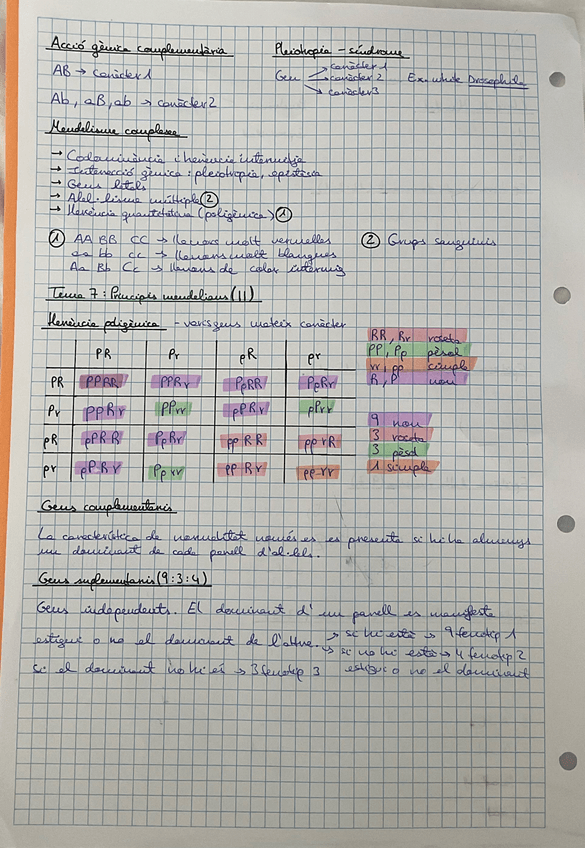 Acció gènica complementària
AB → caràcter 1
Ab, aB, ab → caràcter 2
Pleiotropia - síndrome
Gen → caràcter 1
→ caràcter 2
→ caràcter 3
Ex. white Drosophila
Mendelisme complexe
→ Codominància i herència intermitja
→ Interacció gènica: pleiotropia, epistàsia
→ Gens letals
→ Al·lelisme múltiple ②
→ Herència quantitativa (poligènica) ①
① AA BB CC → llavors molt vermelles
aa bb cc → llavors molt blanques
Aa Bb Cc → llavors de color intermig
② Grups sanguinis
Tema 7: Principis mendelians (II)
Herència poligènica - varis gens mateix caràcter
PR Pr pR pr
PR PPRR PPRr PpRR PpRr
Pr PPRr PPrr pPRr pPrr
pR pPRR PpRr ppRR pprR
pr pPRr Pprr ppRr pprr
RR, Rr roseta
PP, Pp pèsol
rr, pp simple
R, P nou
9 nou
3 roseta
3 pèsol
1 simple
Gens complementaris
La característica de normalitat només es es presenta si hi ha almenys
un dominant de cada parell d'al·lels.
Gens suplementaris (9:3:4)
Gens independents. El dominant d'un parell es manifesta
estigui o no el dominant de l'altre. → si hi està → 9 fenotip 1
→ si no hi està → 4 fenotip 2
si el dominant no hi és → 3 fenotip 3 estigui o no el dominant